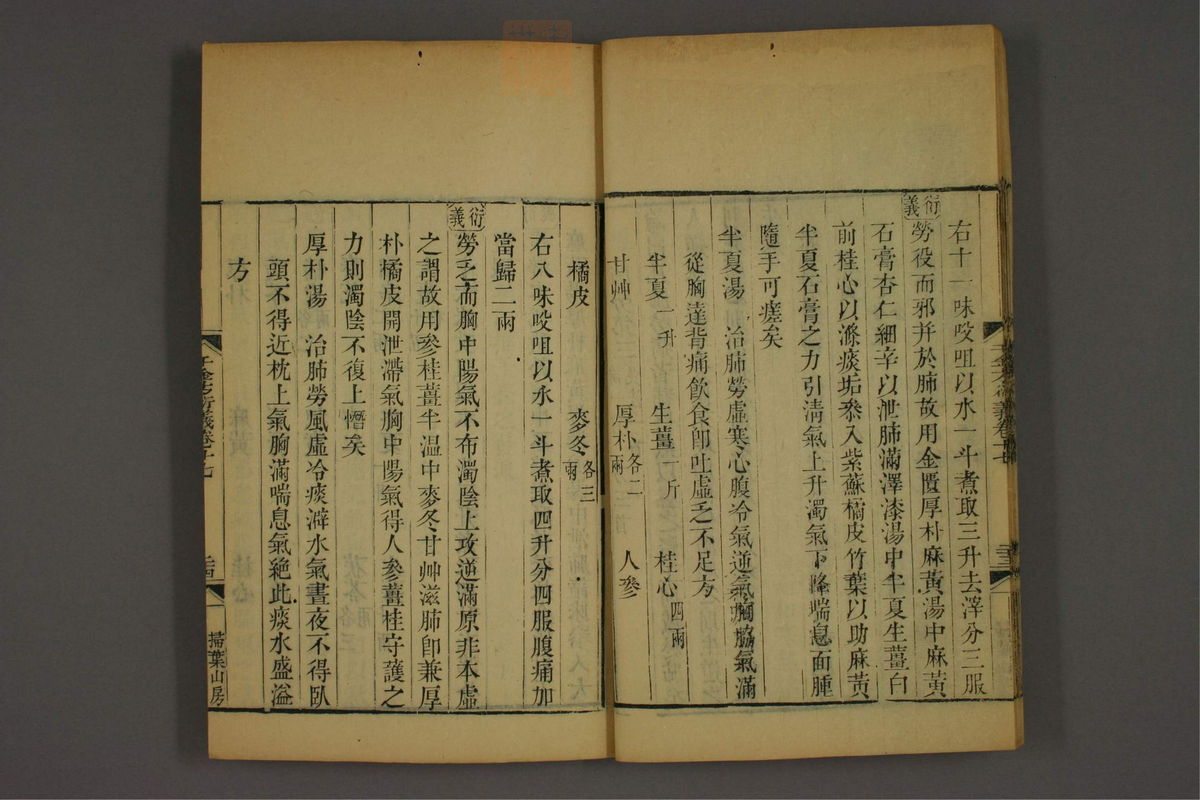 右十一味㕮咀以水一斗煮取三升去滓分三服
衍義
勞役而邪并於肺故用金匱厚朴麻黃湯中麻黃
石膏杏仁細辛以泄肺滿澤漆湯中半夏生薑白
前桂心以滌痰垢叅入紫蘇橘皮竹葉以助麻黃
半夏石膏之力引淸氣上升濁氣下降喘息面腫
隨手可瘥矣
半夏湯 治肺勞虛寒心腹冷氣逆氣胸脇氣滿
從胸達背痛飲食卽吐虛乏不足方
半夏一升 生薑一斤 桂心四兩
甘艸 厚朴各二兩 人參
橘皮 麥冬各三兩
右八味㕮咀以水一斗煮取四升分四服腹痛加
當歸二兩
衍義
勞乏而胸中陽氣不布濁陰上攻逆滿原非本虛
之謂故用參桂薑半温中麥冬甘艸滋肺卽兼厚
朴橘皮開泄滯氣胸中陽氣得人參薑桂守護之
力則濁陰不復上僭矣
厚朴湯 治肺勞風虛冷痰澼水氣晝夜不得臥
頭不得近枕上氣胸滿喘息氣絶此痰水盛溢
方
千金方衍義卷十七
掃葉山房